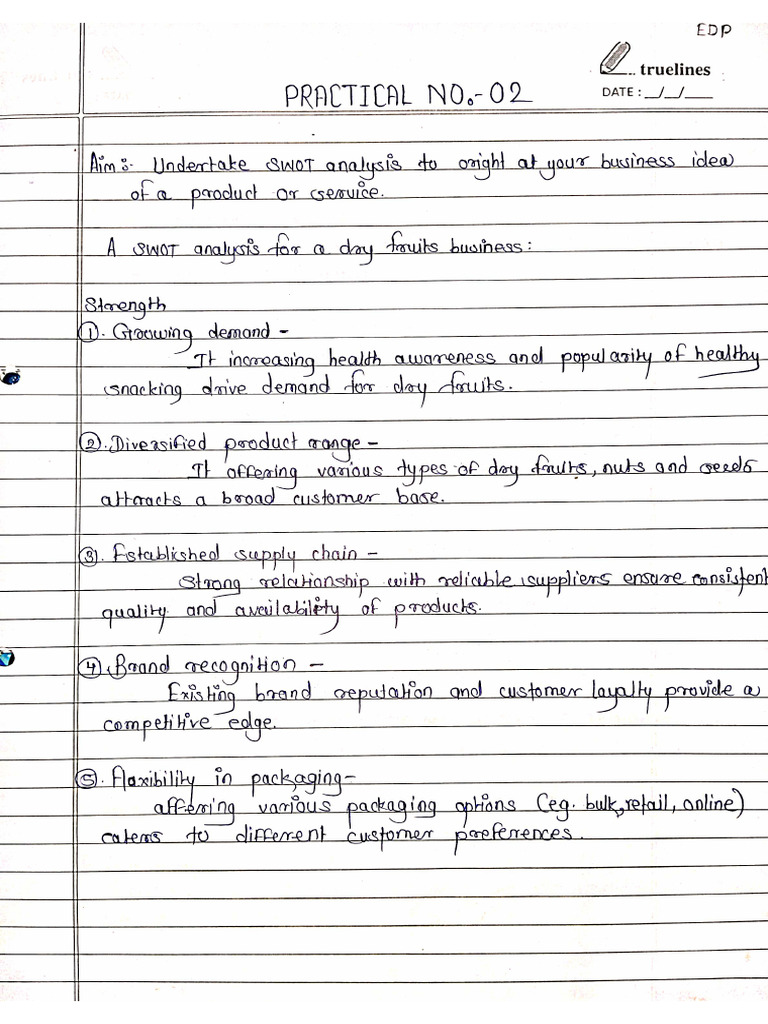 EDP
truelines
DATE : _/_/__
PRACTICAL NO.-02
Aim :- Undertake SWOT analysis to oright at your business idea
of a product or service.
A SWOT analysis for a dry fruits business :
Strength
①. Growing demand -
It increasing health awareness and popularity of healthy
snacking drive demand for dry fruits.
②. Diversified product range -
It offering various types of dry fruits, nuts and seeds
attracts a broad customer base.
③. Established supply chain -
Strong relationship with reliable suppliers ensure consistent
quality and availability of products.
④. Brand recognition -
Existing brand reputation and customer loyalty provide a
competitive edge.
⑤. Flaxibility in packaging -
afferring various packaging options (eg. bulk, retail, online)
caters to different customer preferences.